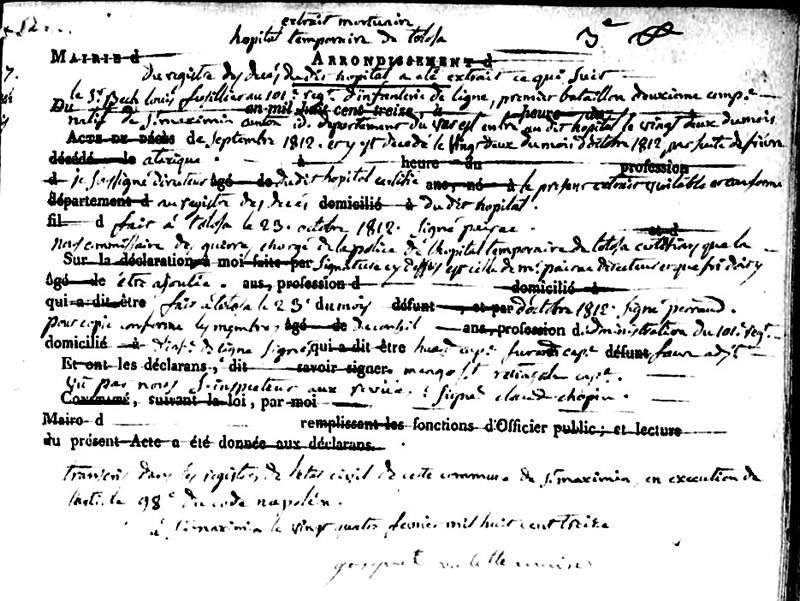 extrait mortuaire
hopital temporaire de tolosa
3e
MAIRIE d ARRONDISSEMENT d
Du registre des décès du dit hopital a été extrait ce qui suit
le Sr. Bech louis fusillier au 101e regt. d'infanterie de ligne, premier bataillon douxieme compe.
Du en mil huit cent treize, à heure du
natif de St. maximin canton id. departement du var est entré au dit hopital le vingt deux du mois
ACTE DE DÉCÈS de septembre 1812. et y est decedé le vingt deux du mois d'octobre 1812, par suite de fievre
décédé le ataxique. à heure du profession
d je soussigné directeur âgé de du dit hopital certifie ans, né à le present extrait veritable et conforme
département d au registre des decès domicilié à du dit hopital.
fil d fait à tolosa le 23. octobre 1812. signé et d
nous commissaire des guerres, chargé de la police de l'hopital temporaire de tolosa certifions que la
Sur la déclaration à moi faite par signature cy dessus est celle de mr. directeur et que foi doit y
âgé de être ajoutée. ans, profession d domicilié à
qui a dit être fait à tolosa le 23e du mois défunt, et par d'octobre 1812. signé
pour copie conforme les membres, âgé de du conseil ans, profession d d'administration du 101e regt.
domicilié à d'infe. de ligne signé, qui a dit être capt. capt. défunt,
Et ont les déclarans, dit savoir signer. capt.
Vu par nous S. inspecteur aux revües: signé claude chopin.
Consumé, suivant la loi, par moi
Maire d remplissent les fonctions d'Officier public; et lecture
du présent Acte a été donnée aux déclarans.
transcris dans les registres de l'etat civil de cette commune de St. maximin, en execution de
l'arti. le 98e du code napoléon.
à St. maximin le vingt quatre fevrier mil huit cent treize
gasquet maire